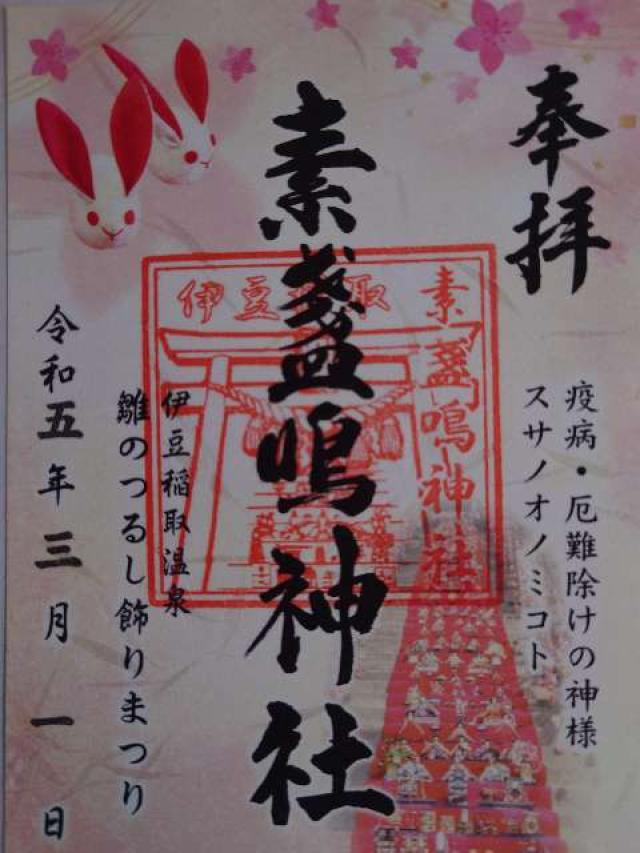 奉拝
疫病・厄難除けの神様
スサノオノミコト
素盞鳴神社
伊豆稲取
素盞鳴神社
伊豆稲取温泉
雛のつるし飾りまつり
令和五年三月一日